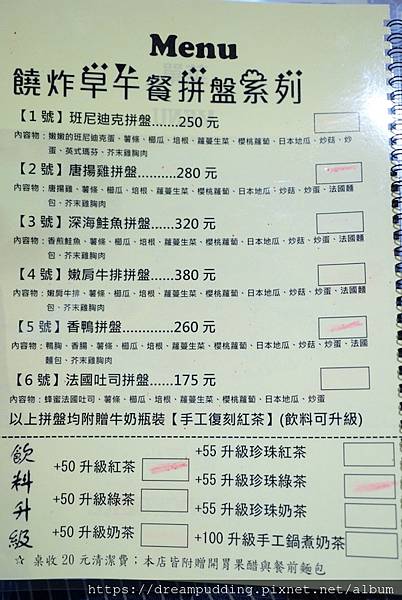 Menu
饒炸早午餐拼盤系列
【1 號】班尼迪克拼盤.......250 元
內容物：嫩嫩的班尼迪克蛋、薯條、櫛瓜、培根、蘿蔓生菜、櫻桃蘿蔔、日本地瓜、炒菇、炒
蛋、英式瑪芬、芥末雞胸肉
【2 號】唐揚雞拼盤..........280 元
內容物：唐揚雞、薯條、櫛瓜、培根、蘿蔓生菜、櫻桃蘿蔔、日本地瓜、炒菇、炒蛋、法國麵
包、芥末雞胸肉
【3 號】深海鮭魚拼盤......320 元
內容物：香煎鮭魚、薯條、櫛瓜、培根、蘿蔓生菜、櫻桃蘿蔔、日本地瓜、炒菇、炒蛋、法國麵
包、芥末雞胸肉
【4 號】嫩肩牛排拼盤......380 元
內容物：嫩肩牛排、薯條、櫛瓜、培根、蘿蔓生菜、櫻桃蘿蔔、日本地瓜、炒菇、炒蛋、法國麵
包、芥末雞胸肉
【5 號】香鴨拼盤.............260 元
內容物：鴨胸、香腸、薯條、櫛瓜、培根、蘿蔓生菜、櫻桃蘿蔔、日本地瓜、炒菇、炒蛋、法國
麵包、芥末雞胸肉
【6 號】法國吐司拼盤......175 元
內容物：蜂蜜法國吐司、薯條、櫛瓜、培根、蘿蔓生菜、櫻桃蘿蔔、日本地瓜、炒蛋
以上拼盤均附贈牛奶瓶裝【手工復刻紅茶】(飲料可升級)
飲料升級
+50 升級紅茶
+50 升級綠茶
+50 升級奶茶
+55 升級珍珠紅茶
+55 升級珍珠綠茶
+55 升級珍珠奶茶
+100 升級手工鍋煮奶茶
☆ 桌收 20 元清潔費；本店皆附贈開胃果醋與餐前麵包
https://dreampudding.pixnet.net/album